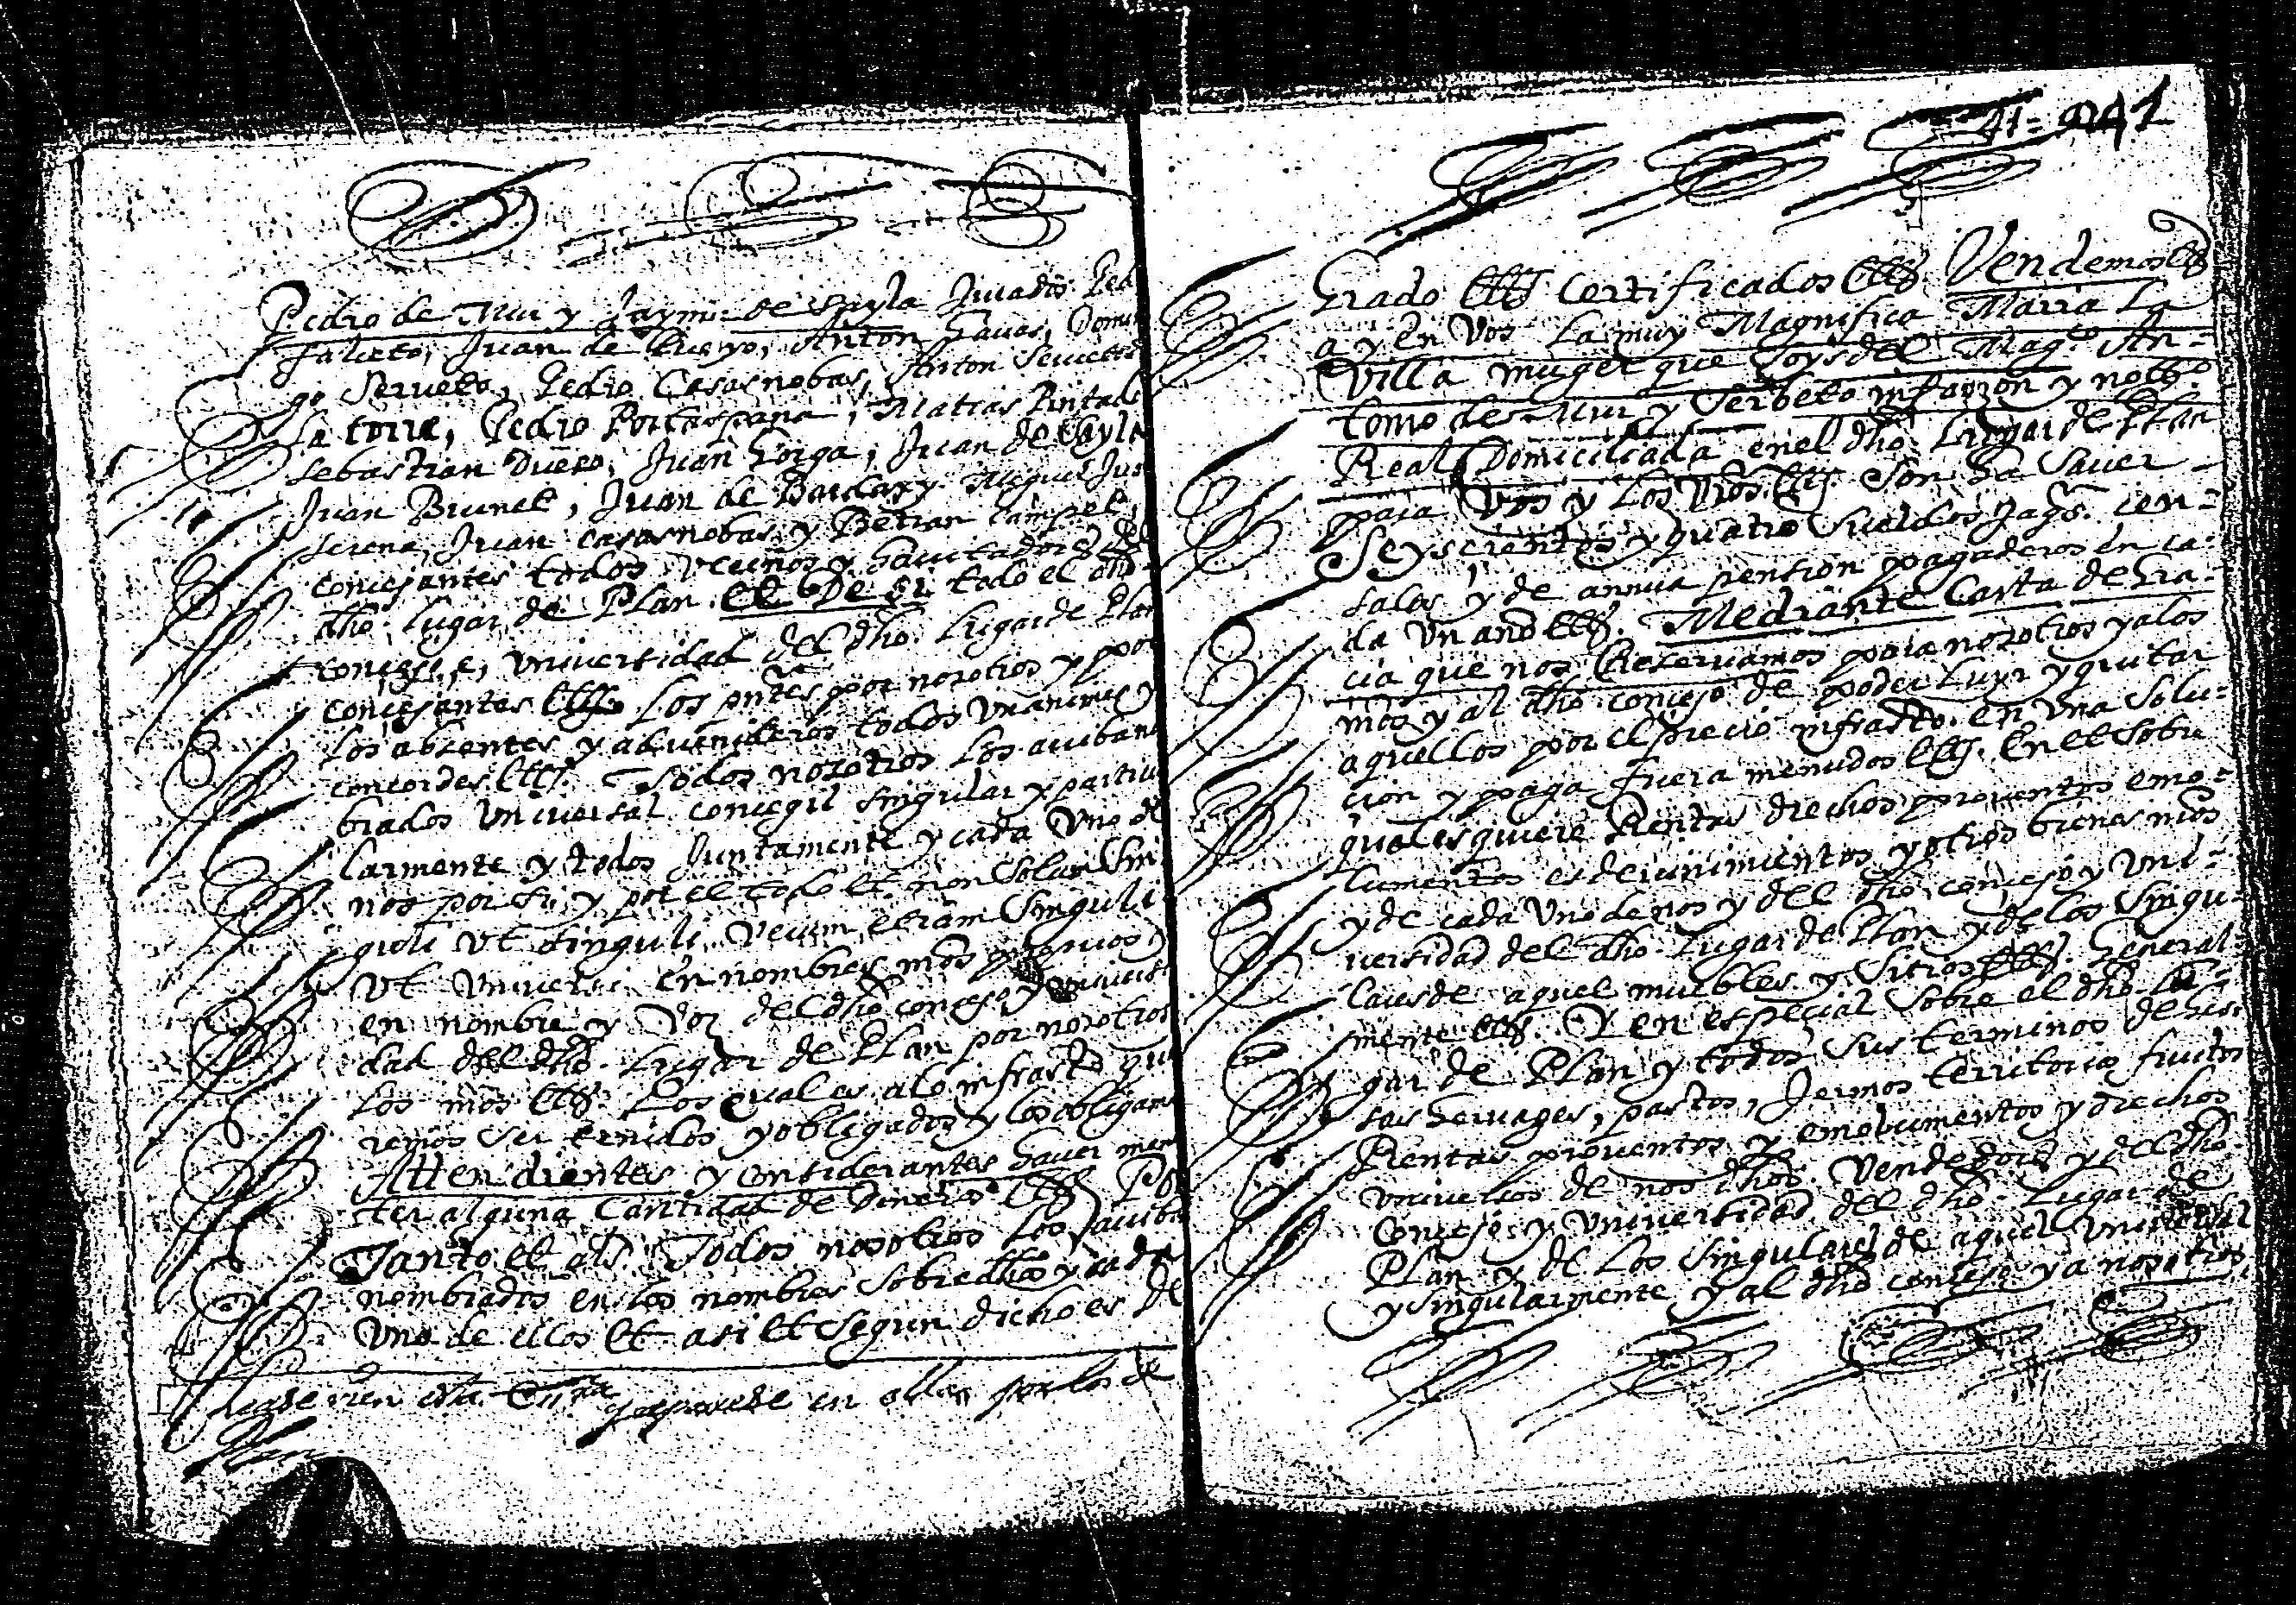 Pedro de Mur y Jayme de Vayla Jurados Ped
Falceto, Juan de Cueyo, Anton Sauas, Domin
go Serueto, Pedro Casasnobas, Anton Serueto
la torre, Pedro Portaspana, Matias Pintado
Sebastian Duero, Juan Lorga, Juan de Vayla
Juan Brunet, Juan de Bardaxy Miguel Jua
Serena, Juan Casasnobas, y Betran Campel
concejantes todos vecinos y hauitadores del
dho lugar de Plan et De si todo el dho
concejo e, vniuersidad del dho Lugar de Plan
concejantes ett. Los pntes por nosotros y por
los absentes y aduenideros todos vnanimes y
concordes ett. Todos nosotros los arriba no
brados vniuersal concegil singular y particu
larmente y todos Juntamente y cada vno de
nos por si, y por el todo et non solum sin
guli vt singuli, verum etiam singuli
vt vniuersi en nombres nros proprios y
en nombre y voz del dho concejo y vniuersi
dad del dho Lugar de Plan por nosotros
los nros ett. Los quales a lo infrasto que
remos ser tenidos y obligados y los obligamos
Attendientes y considerantes hauer menes
ter alguna Cantidad de Dinero ett Por
Tanto et als Todos nosotros los arriba
nombrados en los nombres sobredhos y cada
vno de ellos et asi et segun dicho es de
en esta en ella por los de
Plan
241
Grado ett Certificados ett Vendemos ett
a y en Vos la muy Magnifica Maria La
Villa muger que soys del Magco An-
tonio de Mur y Serbeto infanzon y notto
Real Domiciliada en el dho Lugar de Plan
para Vos y los Vros ett Son ha Sauer
Seyscientos y quatro Sueldos Jaqs cen-
sales y de annua pention pagaderos en ca-
da vn año ett. Mediante Carta de Gra-
cia que nos Reseruamos para nosotros y a los
nros y al dho concejo de poder Luyr y quitar
aquellos por el precio infrasto en vna solu-
cion y paga fuera menudos ett. En et sobre
qualesquiere Rentas drechos prouentos emo-
lumentos esdeuinimientos y otros bienes nros
y de cada vno de nos y del dho concejo y vni-
uersidad del dho Lugar de Plan y de los Singu-
lares de aquel muebles y Sitios ett. General-
mente ett. Y en especial Sobre el dho Lu-
gar de Plan y todos sus terminos dehes-
sas heruages, pastos, Jermos territorio frutos
Rentas prouentos y emolumentos y drechos
vniuersos de nos dhos Vendedores y del dho
Concejo y vniuersidad del dho Lugar de
Plan y de los Singulares de aquel vniuersal
y singularmente y al dho concejo y a nosotros